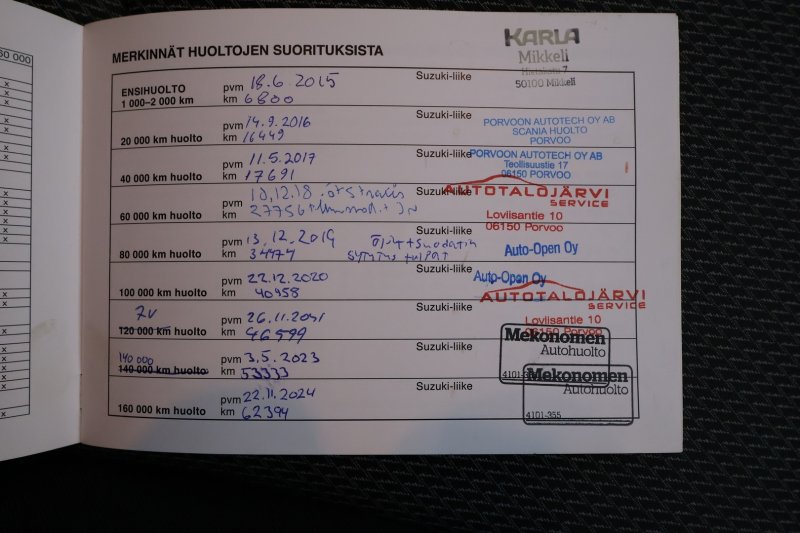 60 000
x
x
x
x
x
x
x
x
x
x
x
x
x
MERKINNÄT HUOLTOJEN SUORITUKSISTA
KARLA
Mikkeli
50100 Mikkeli
ENSIHUOLTO pvm 18.6.2015 Suzuki-liike
1 000–2 000 km km 6800
pvm 14.9.2016 Suzuki-liike PORVOON AUTOTECH OY AB
SCANIA HUOLTO
20 000 km huolto km 16449 PORVOO
pvm 11.5.2017 Suzuki-liike PORVOON AUTOTECH OY AB
Teollisuustie 17
40 000 km huolto km 17691 06150 PORVOO
pvm 10.12.18 Suzuki-liike AUTOTALOJÄRVI
SERVICE
60 000 km huolto km 27756 Loviisantie 10
06150 Porvoo
pvm 13.12.2019 Öljyt+suodatin Suzuki-liike
80 000 km huolto km 34474 sytytystulpat Auto-Open Oy
pvm 22.12.2020 Suzuki-liike Auto-Open Oy
100 000 km huolto km 40958 AUTOTALOJÄRVI
SERVICE
7v pvm 26.11.2021 Suzuki-liike Loviisantie 10
06150 Porvoo
120 000 km huolto km 46599 Mekonomen
Autohuolto
140 000 pvm 3.5.2023 Suzuki-liike
140 000 km huolto km 53333 4101-3
Mekonomen
pvm 22.11.2024 Suzuki-liike Autohuolto
160 000 km huolto km 62394 4101-355